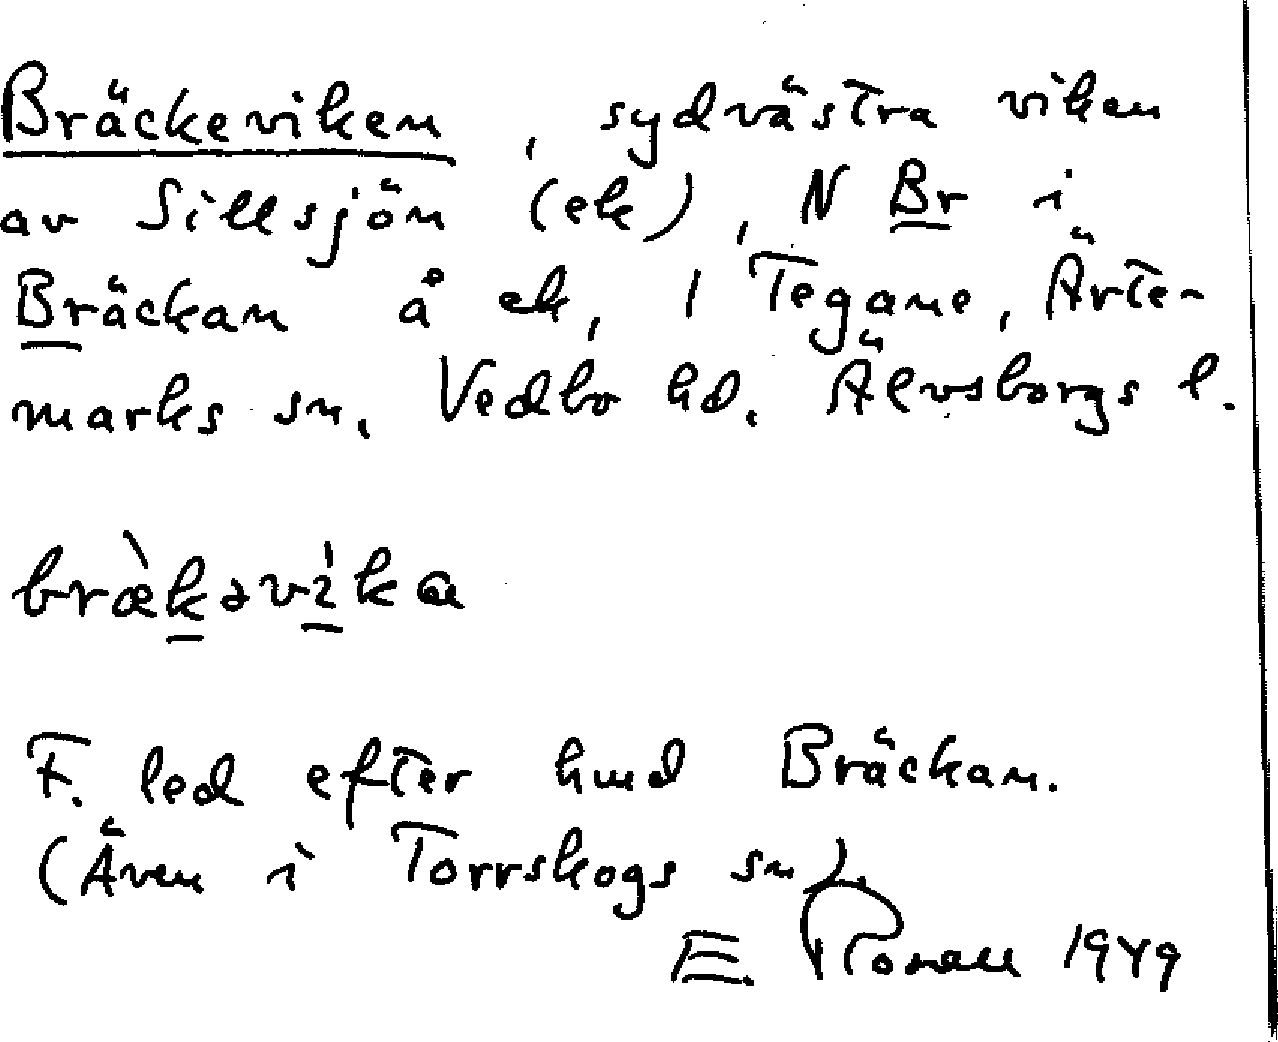 Bräckeviken, sydvästra viken
av Sillsjön (ek), N Br i
Bräckan å ek, 1 Tegane, Ärte-
marks sn, Vedbo hd. Älvsborgs l.
bræ̀kəvi̇́ka
F. led efter hmd Bräckan.
(Även i Torrskogs sn).
E. Rosell 1949